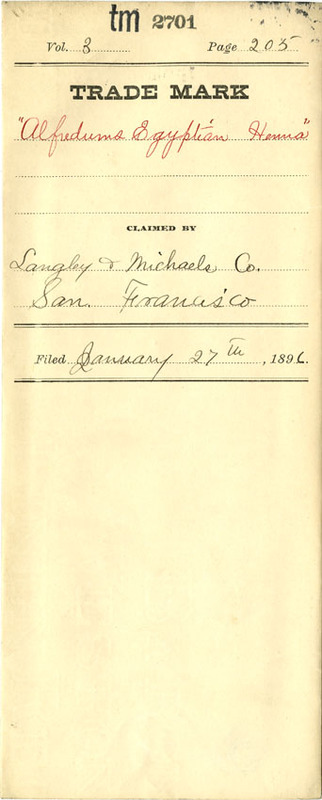 tm 2701
Vol. 3 Page 205
TRADE MARK
"Alfredums Egyptian Henna"
CLAIMED BY
Langley & Michaels Co.
San Francisco
Filed January 27th, 1896.